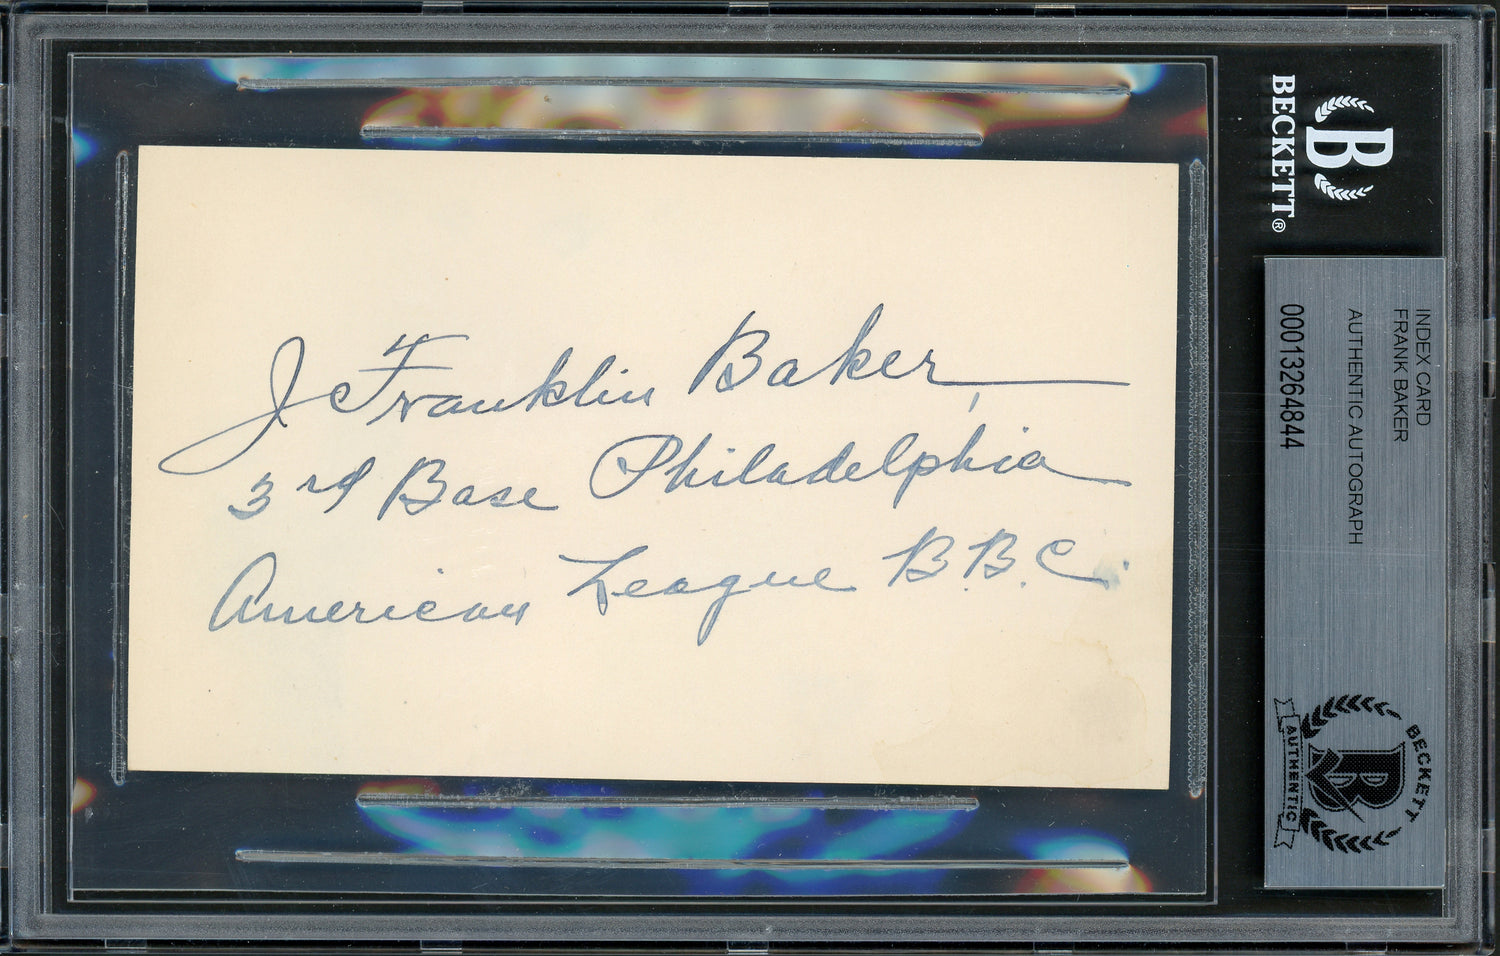 J Franklin Baker,
3rd Base Philadelphia
American League B.B.C.
BECKETT®
B
INDEX CARD
FRANK BAKER
AUTHENTIC AUTOGRAPH
00013264844
BECKETT
B
AUTHENTIC